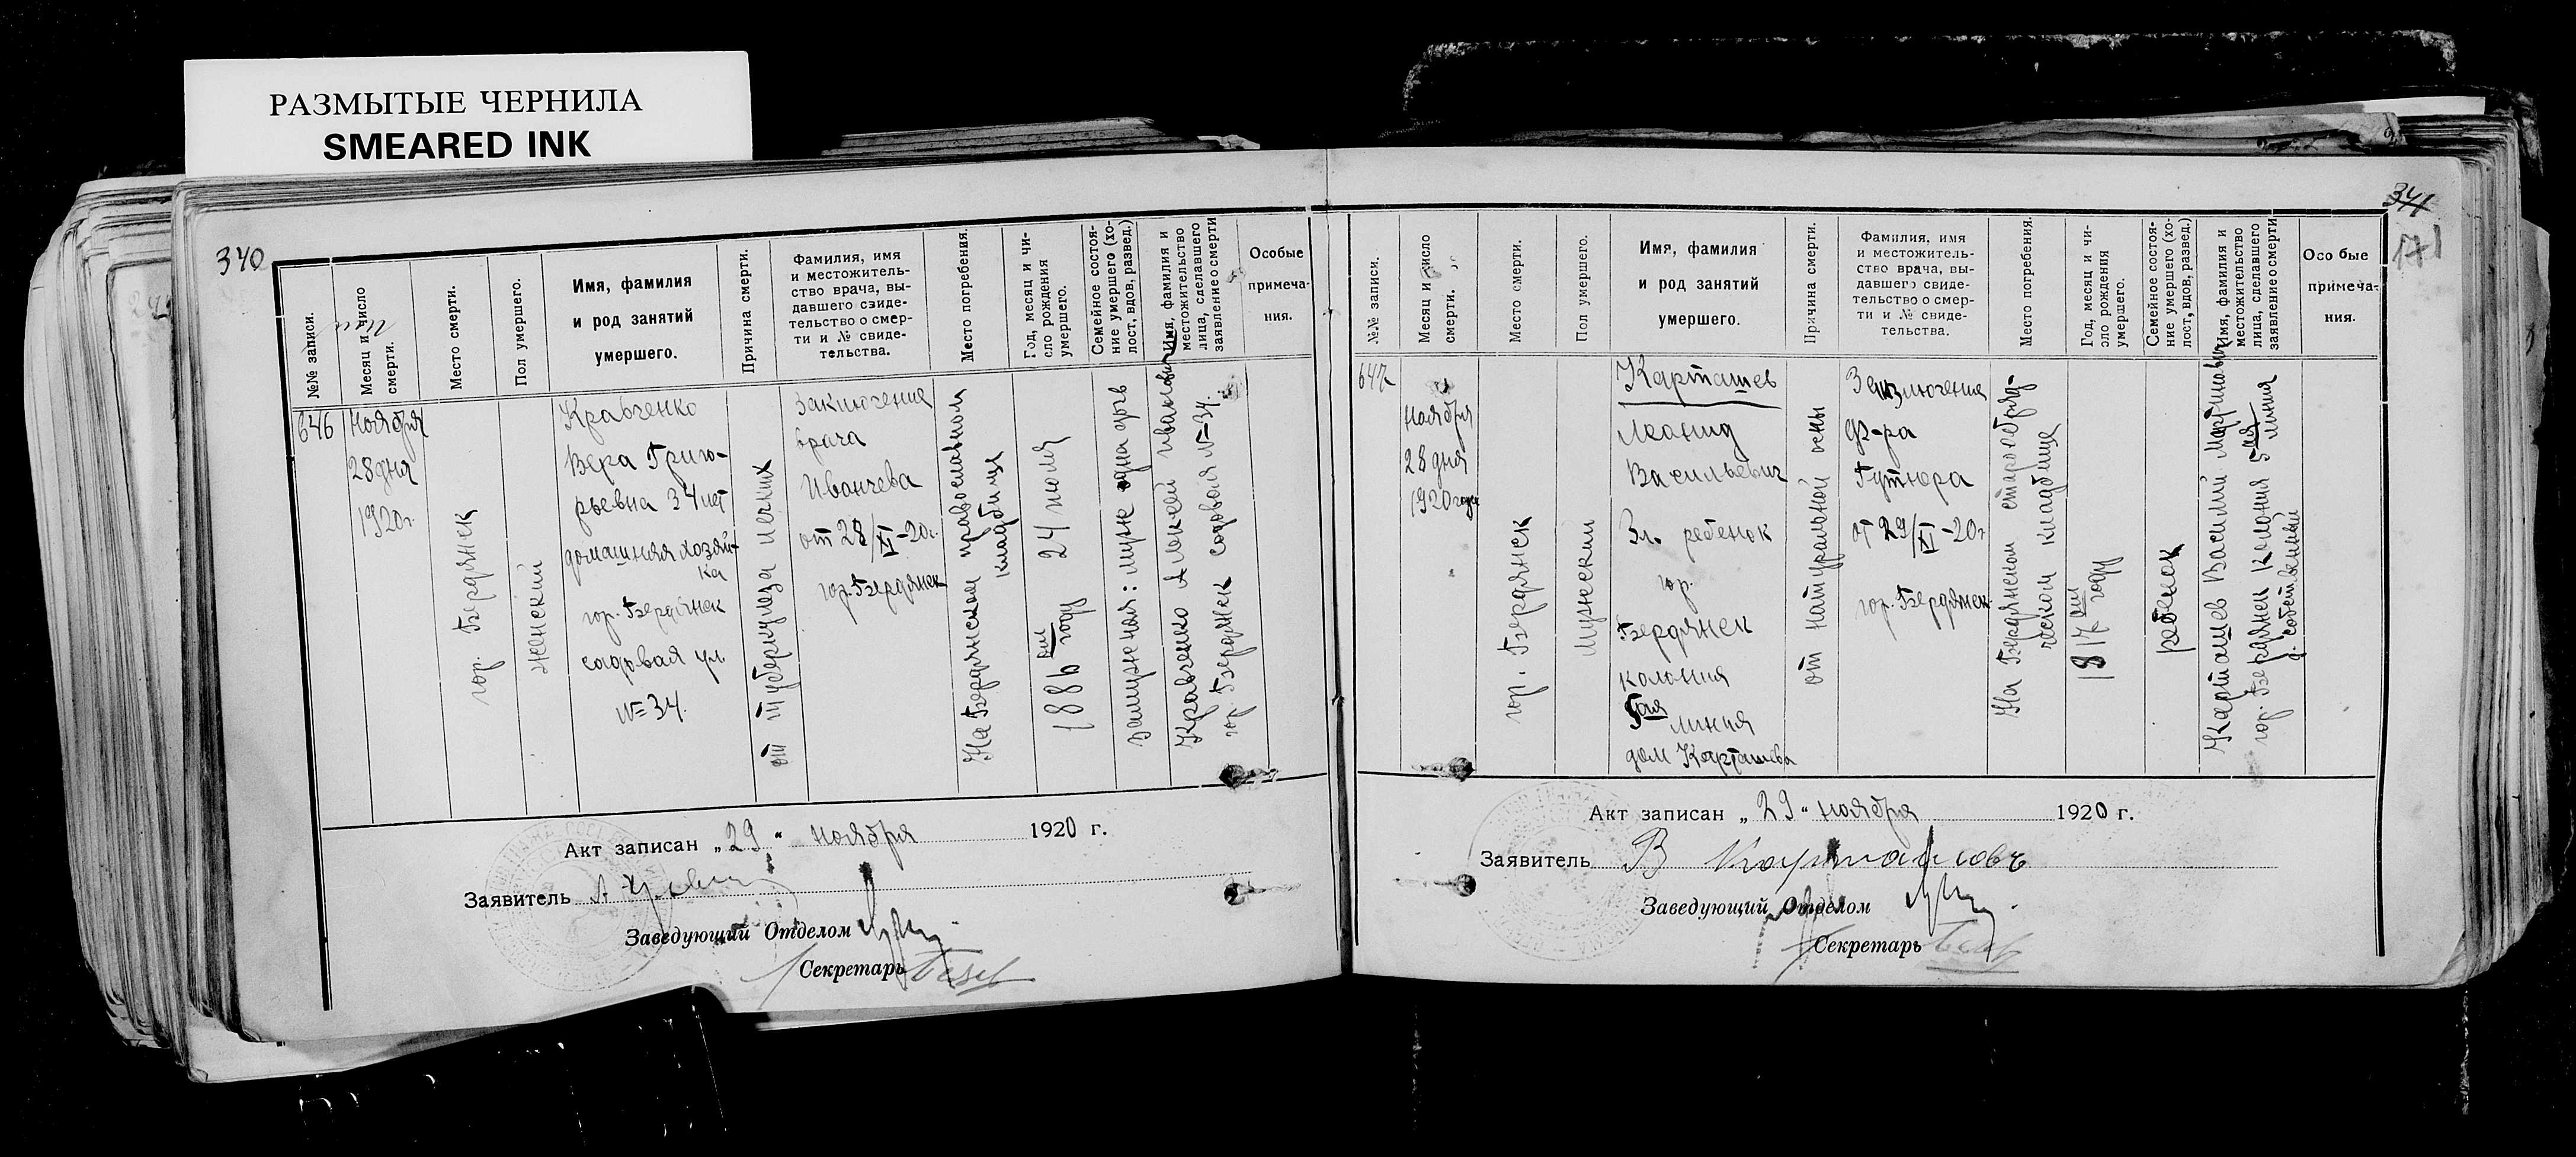 РАЗМЫТЫЕ ЧЕРНИЛА
SMEARED INK
340
№№ записи.
Месяц и число
смерти.
Место смерти.
Пол умершего.
Имя, фамилия
и род занятий
умершего.
Причина смерти.
Фамилия, имя
и местожитель-
ство врача, вы-
давшего свиде-
тельство о смер-
ти и № свиде-
тельства.
Место погребения.
Год, месяц и чи-
сло рождения
умершего.
Семейное состоя-
ние умершего (хо-
лост, вдов, развед.)
Имя, фамилия и
местожительство
лица, сделавшего
заявление о смерти
Особые
примеча-
ния.
646
Ноября
28 дня
1920г.
гор. Бердянск
женский
Кравченко
Вера Григо-
рьевна 34 лет
домашняя хозяй-
ка
гор. Бердянск
садовая ул.
№ 34.
от туберкулеза легких
Заключение
врача
Иванчева
от 28/XI-20г.
гор. Бердянск
На Бердянском православном
кладбище
1886 году 24 июля
замужная: муж одна дочь
Кравченко Алексей Иванович
гор. Бердянск садовая №-34.
Акт записан „29“ ноября 1920 г.
Заявитель
Заведующий Отделом
Секретарь
341
171
№№ записи.
Месяц и число
смерти.
Место смерти.
Пол умершего.
Имя, фамилия
и род занятий
умершего.
Причина смерти.
Фамилия, имя
и местожитель-
ство врача, вы-
давшего свиде-
тельство о смер-
ти и № свиде-
тельства.
Место погребения.
Год, месяц и чи-
сло рождения
умершего.
Семейное состоя-
ние умершего (хо-
лост, вдов, развед.)
Имя, фамилия и
местожительство
лица, сделавшего
заявление о смерти
Особые
примеча-
ния.
647
Ноября
28 дня
1920 года
гор. Бердянск
Мужской
Карташев
Леонид
Васильевич
3л. ребенок
гор.
Бердянск
колония
5ая линия
дом Карташева
от натуральной оспы
Заключение
Д-ра
Гутнора
от 29/XI-20г
гор. Бердянск
На Бердянском старообряд-
ческом кладбище
году
ребенок
Карташев Василий Мартинович
гор. Бердянск колония 5ая линия
д. собственный
Акт записан „29“ ноября 1920 г.
Заявитель В Карташовъ
Заведующий Отделом
Секретарь